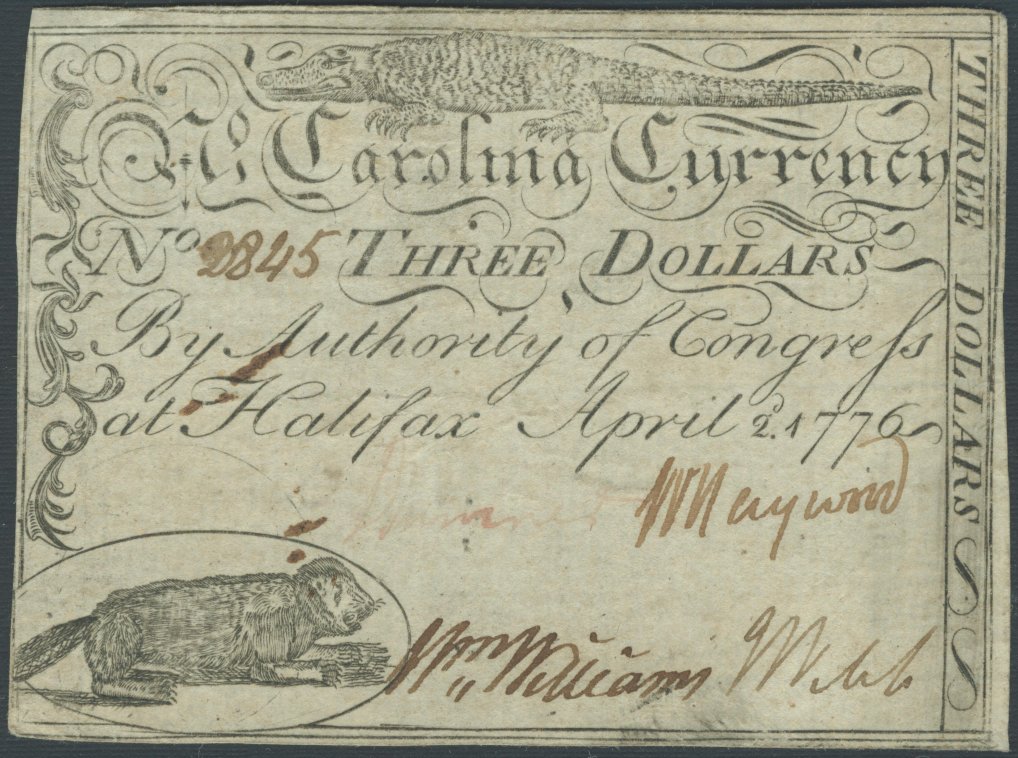 No Carolina Currency
No 2845 THREE DOLLARS
By Authority of Congreſs
at Halifax April 2d. 1776
W Haywood
Wm Williams J Webb
THREE DOLLARS